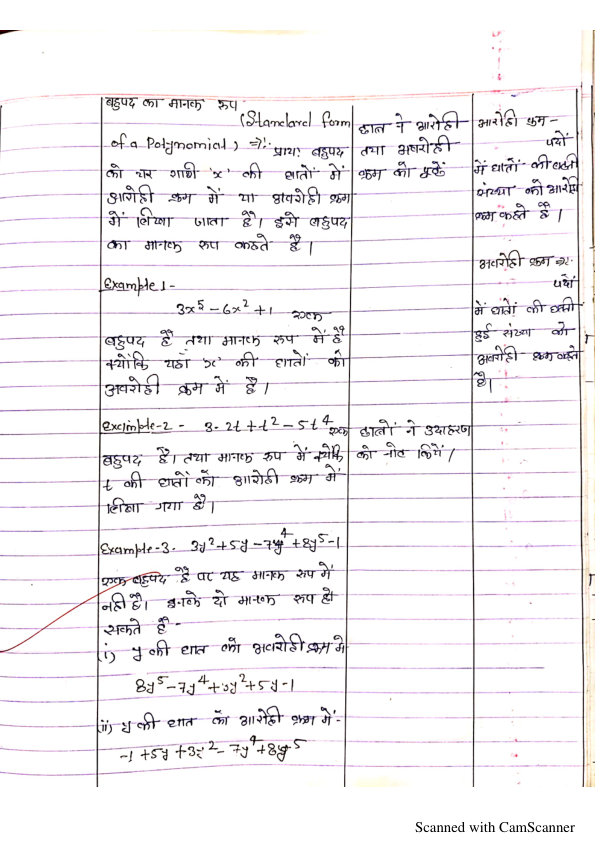 बहुपद का मानक रूप
(Standard form
of a Polynomial) ⇒:- प्रायः बहुपद
को चर राशी 'x' की घातों में
आरोही क्रम में या अवरोही क्रम
में लिखा जाता है। इसे बहुपद
का मानक रूप कहते है।
Example 1-
3x⁵ - 6x² + 1 एक
बहुपद है तथा मानक रूप में है
क्योंकि यहाँ 'x' की घातों को
अवरोही क्रम में है।
Example-2 - 3-2t+t²-5t⁴ एक
बहुपद है। तथा मानक रूप में क्योंकि
t की घातों को आरोही क्रम में
लिखा गया है।
Example-3. 3y²+5y-7y⁴+8y⁵-1
एक बहुपद है पर यह मानक रूप में
नही है। इनके दो मानक रूप हो
सकते है -
(i) y की घात को अवरोही क्रम में
8y⁵-7y⁴+3y²+5y-1
(ii) y की घात को आरोही क्रम में-
-1+5y+3y²-7y⁴+8y⁵
छात्र ने आरोही
तथा अवरोही
क्रम को
छात्रों ने उदाहरण
को नोट किये।
आरोही क्रम -
पदों
में घातों की बढ़ती
संख्या को आरोही
क्रम कहते है।
अवरोही क्रम ⇒:-
पदों
में घातों की घटती
हुई संख्या को
अवरोही क्रम कहते
है।
Scanned with CamScanner